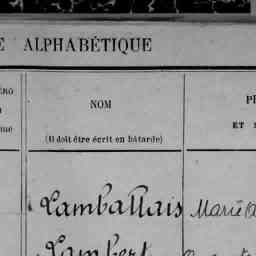 E ALPHABÉTIQUE
ÉRO
NOM
ET
(Il doit être écrit en bâtarde)
Lamballais Marie
Lambert